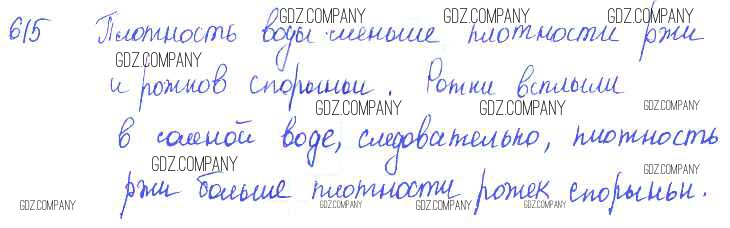 615 Плотность воды меньше плотности ржи
и рожков спорыньи. Рожки всплыли
в соленой воде, следовательно, плотность
ржи больше плотности рожек спорыньи.
GDZ.COMPANY
GDZ.COMPANY
GDZ.COMPANY
GDZ.COMPANY
GDZ.COMPANY
GDZ.COMPANY
GDZ.COMPANY
GDZ.COMPANY
GDZ.COMPANY
GDZ.COMPANY
GDZ.COMPANY
GDZ.COMPANY
GDZ.COMPANY